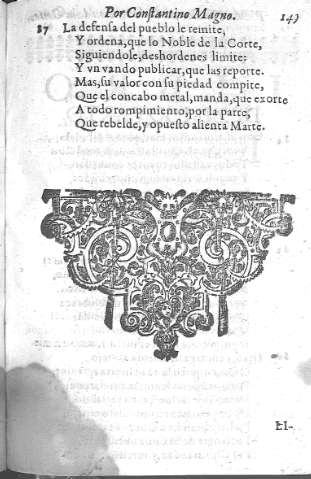 Por Constantino Magno. 149
87 La defensa del pueblo le remite,
Y ordena, que lo Noble de la Corte,
Siguiendole, deshordenes limite:
Y vn vando publicar, que las reporte.
Mas, su valor con su piedad compite,
Que el concabo metal, manda, que exorte
A todo rompimiento, por la parte,
Que rebelde, y opuesto alienta Marte.
El-